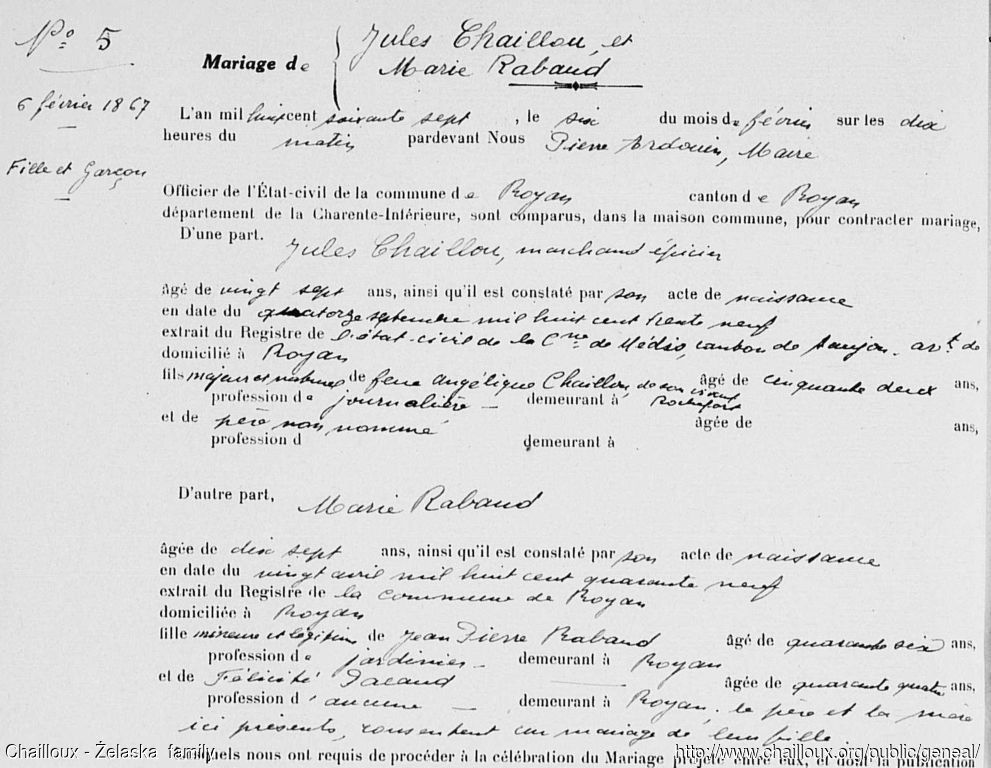 N° 5
Mariage de { Jules Chaillou, et
Marie Rabaud
6 février 1867
L'an mil huit cent soixante sept, le six du mois de février sur les dix
heures du matin pardevant Nous Pierre Ardouin, Maire
Fille et Garçon
Officier de l'État-civil de la commune de Royan canton de Royan
département de la Charente-Inférieure, sont comparus, dans la maison commune, pour contracter mariage,
D'une part. Jules Chaillou, marchand épicier
âgé de vingt sept ans, ainsi qu'il est constaté par son acte de naissance
en date du quatorze septembre mil huit cent trente neuf
extrait du Registre de l'état-civil de la Cne de Médis, canton de Saujon. art de
domicilié à Royan
fils majeur et naturel de feue Angélique Chaillou, de son vivant âgé de cinquante deux ans,
profession de journalière – demeurant à Rochefort
et de père non nommé âgée de ans,
profession d demeurant à
D'autre part, Marie Rabaud
âgée de dix sept ans, ainsi qu'il est constaté par son acte de naissance
en date du vingt avril mil huit cent quarante neuf
extrait du Registre de la commune de Royan
domiciliée à Royan
fille mineure et légitime de Jean Pierre Rabaud âgé de quarante six ans,
profession de jardinier – demeurant à Royan
et de Félicité âgée de quarante quatre ans,
profession d'aucune – demeurant à Royan, le père et la mère
ici présents, consentant au mariage de leur fille.
Chailloux - Želaska family
quels nous ont requis de procéder à la célébration du Mariage projeté entre eux, et dont la publication
http://www.chailloux.org/public/geneal/